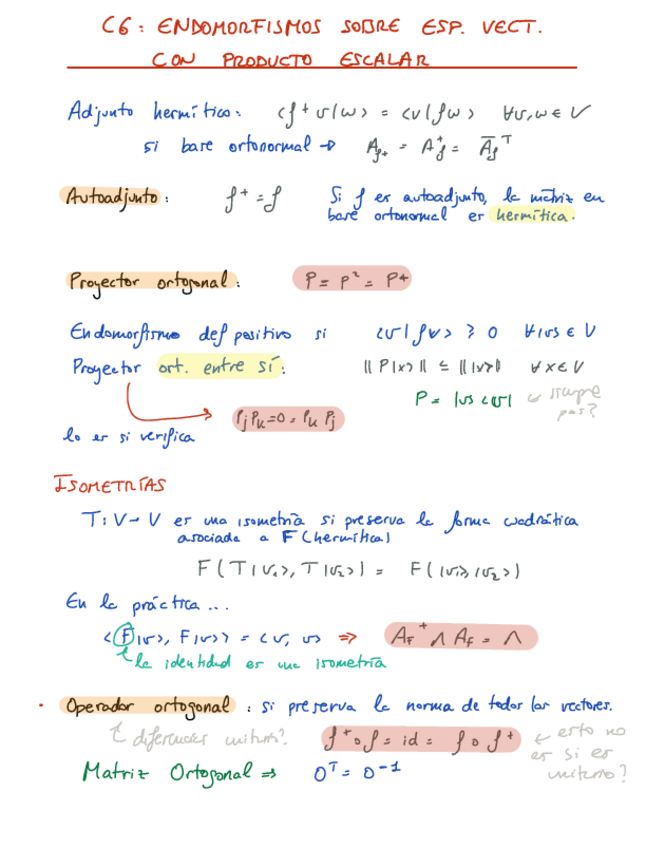 C6: ENDOMORFISMOS SOBRE ESP. VECT.
CON PRODUCTO ESCALAR
Adjunto hermítico: <f⁺v|w> = <v|fw> ∀v,w ∈ V
si base ortonormal → A_f⁺ = A_f⁺ = Ā_f^T
Autoadjunto: f⁺ = f Si f es autoadjunto, la matriz en
base ortonormal es hermítica.
Proyector ortogonal: P = P² = P⁺
Endomorfismo def positivo si <v|fv> ≥ 0 ∀|v> ∈ V
Proyector ort. entre sí: ||P|x>|| ≤ |||v>|| ∀x ∈ V
P = |v><v| siempre
pas?
PjPk=0=PkPj
lo es si verifica
ISOMETRÍAS
T: V→V es una isometría si preserva la forma cuadrática
asociada a F (hermítica)
F(T|v₁>, T|v₂>) = F(|v₁>, |v₂>)
En la práctica...
<F|v>, F|v>> = <v, v> ⇒ A_F⁺ Λ A_F = Λ
la identidad es una isometría
Operador ortogonal: si preserva la norma de todos los vectores.
diferencias unitario? f⁺∘f = id = f∘f⁺ ← esto no
es si es
unitario?
Matriz Ortogonal ⇒ O^T = O⁻¹